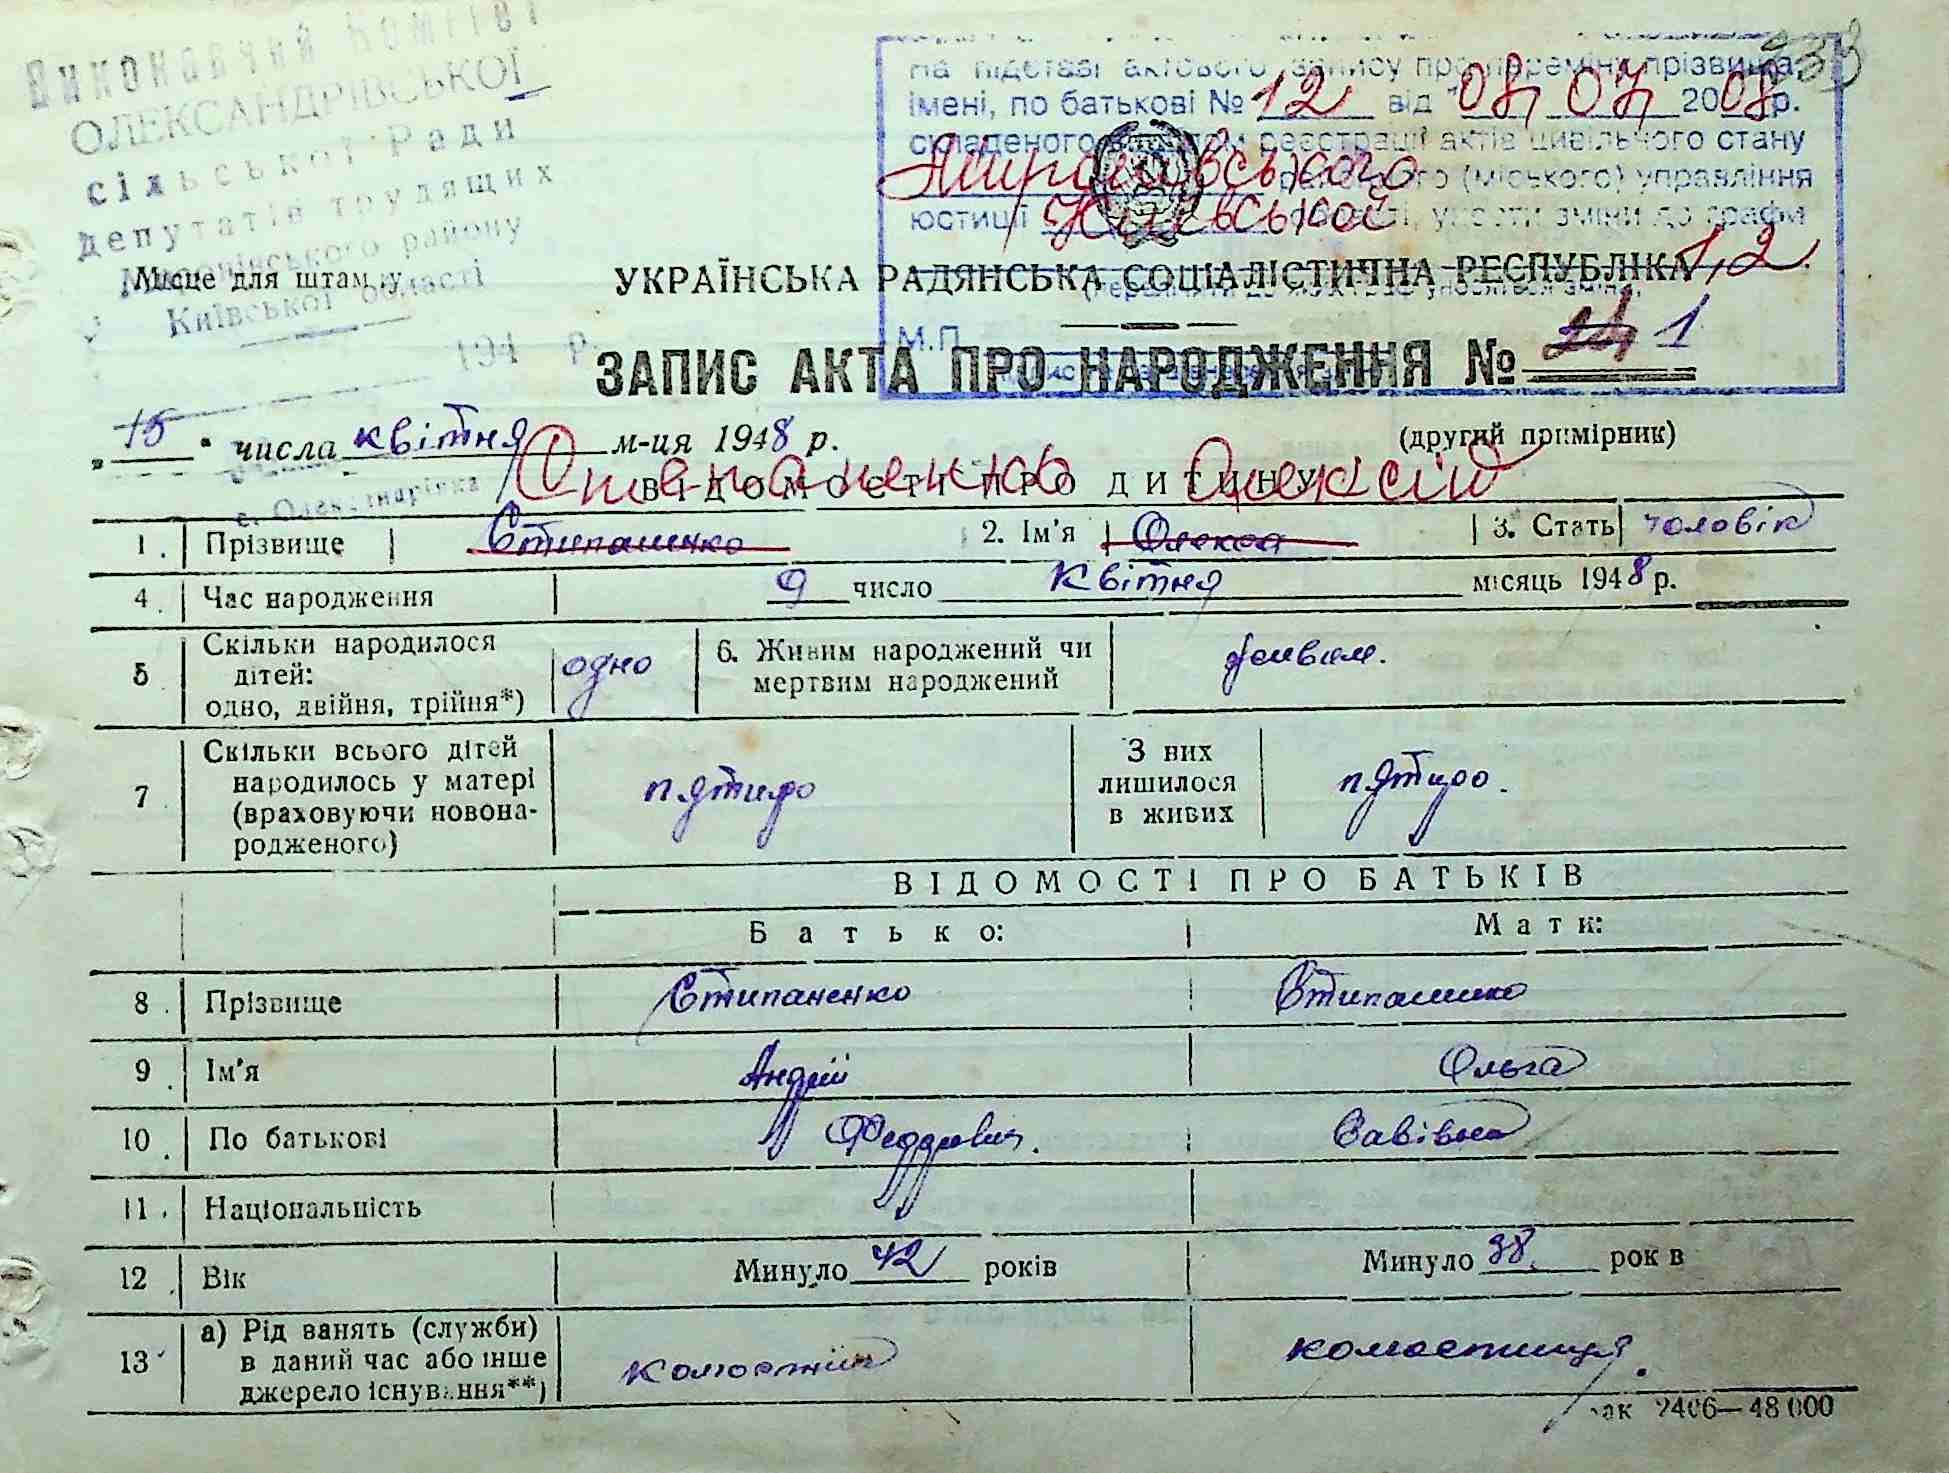 Виконавчий Комітет
ОЛЕКСАНДРІВСЬКОЇ
сільської Ради
депутатів трудящих
Миронівського району
Київської області
194 р.
с. Олександрівка
Місце для штампу
На підставі актового запису про переміну прізвища,
імені, по батькові № 12 від 08 07 2008р.
складеного відділом реєстрації актів цивільного стану
Миронівського районного (міського) управління
юстиції Київської області, унести зміни до графи
1,2
М.П.
УКРАЇНСЬКА РАДЯНСЬКА СОЦІАЛІСТИЧНА РЕСПУБЛІКА
ЗАПИС АКТА ПРО НАРОДЖЕННЯ № 1
„15" числа квітня м-ця 1948 р.
(другий примірник)
ВІДОМОСТІ ПРО ДИТИНУ
Степаненко Олексій
1. Прізвище Стипаненко 2. Ім'я Олекса 3. Стать чоловік
4. Час народження 9 число квітня місяць 1948 р.
5 Скільки народилося дітей: одно, двійня, трійня*) одно 6. Живим народжений чи мертвим народжений живим.
7. Скільки всього дітей народилось у матері (враховуючи новонародженого) пятеро З них лишилося в живих пятеро.
ВІДОМОСТІ ПРО БАТЬКІВ
Батько: Мати:
8. Прізвище Стипаненко Стипаненко
9. Ім'я Андрій Ольга
10. По батькові Федорович. Савівна
11. Національність
12. Вік Минуло 42 років Минуло 38. років
13 а) Рід занять (служби) в даний час або інше джерело існування**) колгоспник колгоспниця.
Зак 2406—48 000